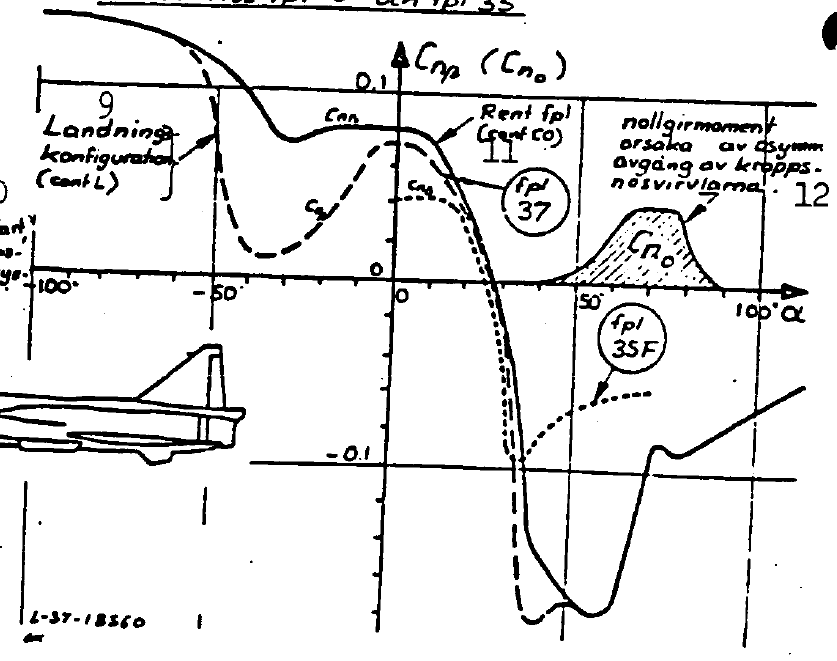 fpl 35
Cnβ (Cn₀)
0.1
9
Landnings-
konfiguration
(conf L)
Rent fpl
(conf CO)
11
nollgirmoment
orsaka av asymm
avgång av kropps-
nosvirvlarna.
7
12
fpl
37
Cn₀
0
-100°
-50°
0
50°
100° α
fpl
35F
-0.1
L-37-18560